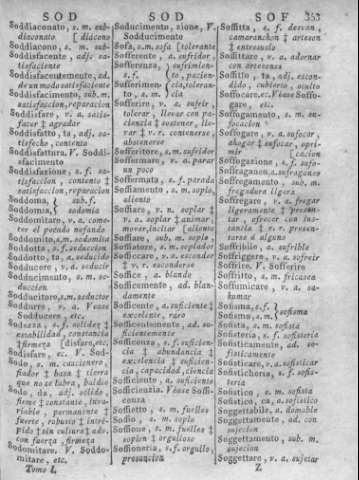 SOD SOD SOF 353
Soddiaconato, s. m. sub-
diaconato [ diáceno
Soddiacono, s. m. sub-
Soddisfacente, adj. sa-
tisfaciente
Soddisfacentemente, ad.
de un modo satisfaciente
Soddisfacimento, sub. m.
satisfaccion, reparacion
Soddisfare, v. a. satis-
facer ‡ agradar
Soddisfatto, ta, adj. sa-
tisfecho, contento
Soddisfattura. V. Soddi-
sfacimento
Soddisfazione, s. f. sa-
tisfaccion, contento ‡
satisfaccion, reparacion
Soddoma, } sub. f.
Soddomia, } sodomía
Soddomitare, v. a. come-
ter el pecado nefando
Soddomito, s. m. sodomita
Soddotta, s. f. seduccion
Soddotto, ta, a. seducido
Soddurre, v. a. Vease
Sodducere, etc.
Sodezza, s. f. solidez ‡
estabilidad, constancia
‡ firmeza [ disfare, etc.
Sodisfare, ec. V. Sod-
Sodo, s. m. caucionero,
fiador ‡ basa ‡ tierra
que no se labra, baldío
Sodo, da, adj. sólido,
firme ‡ constante, inva-
riable, permanente ‡
fuerte, robusto ‡ intré-
pido ‡ sin cultura ‡ ad.
con fuerza, firmeza
Sodomitare. V. Soddo-
mitare, etc.
Tomo I.
Soducimento, zione, V.
Sodducimento
Sofà, s. m. sofá [ tolerante
Sofferente, a. sufridor,
Sofferenza, } sufrimien-
Soffrire, v. a. sufrir,
tolerar, llevar con pa-
ciencia ‡ sostener, lle-
var ‡ v. r. contenerse,
abstenerse
Sofferitore, s. m. sufridor
Soffermare, v. a. parar
un poco
Soffermata, s. f. parada
Soffiamento, s. m. soplo,
aliento
Soffiare, v. n. soplar ‡
v. a. soplar ‡ animar,
mover, incitar [ aliento
Soffiare, sub. m. soplo,
Soffiatore, s. m. soplador
Sofficcare, v. a. esconder
‡ v. r. esconderse
Soffice, a. blando
Sofficemente, ad. blan-
damente
Sofficente, a. suficiente ‡
excelente, raro
Sofficentemente, ad. su-
ficientemente
Sofficenza, s. f. suficien-
cia ‡ abundancia ‡
excelencia ‡ suficien-
cia, capacidad, ciencia
Sofficiente, a. suficiente
Sofficienza. Véase Soffi-
cenza
Soffietto, s. m. fuelles
Soffio, s. m. soplo
Soffione, s. m. fuelles ‡
sopion ‡ orgulloso
Soffioneria, s. f. orgullo,
presuncion
Soffitta, s. f. desvan,
camaranchon ‡ artesen
‡ entresuelo
Soffittare, v. a. adornar
con artesones
Soffitto, ta, adj. escon-
dido, cubierto, oculto
Soffocare, ec. Véase Soffo-
gare, etc.
Soffogamento, s. m. su-
focacion
Soffogare, v. a. sufocar,
ahogar ‡ sufocar, opri-
mir [ cacion
Soffogazione, s. f. sufo-
Soffraganeo, a. sufraganeo
Soffregamento, sub. m.
fregadura ligera
Soffregare, v. a. fregar
ligeramente ‡ presen-
tar, ofrecer con ins-
tancia ‡ v. r. presen-
tarse á alguno
Soffribile, a. sufrible
Soffriggere, v. a. sofreir
Soffrire. V. Sofferire
Soffritto, s. m. fricasea
Soffumicare, v. a. sa-
humar
Sofisma, s. f. }
Sofismo, s. m. } sofisma
Sofista, s. m. sofista
Sofisteria, s. f. sofisteria
Sofisticamente, ad. so-
fisticamente
Sofisticare, v. a. sofisticar
Sofisticheria, s. f. sofis-
teria
Sofistico, s. m. sofista
Sofistico, ca, a. sofístico
Soggettabile, a. domable
Soggettamente, ad. con
sujecion
Soggettamento, sub. m.
sujecion
Soggettare, v. a. sujetar
Z